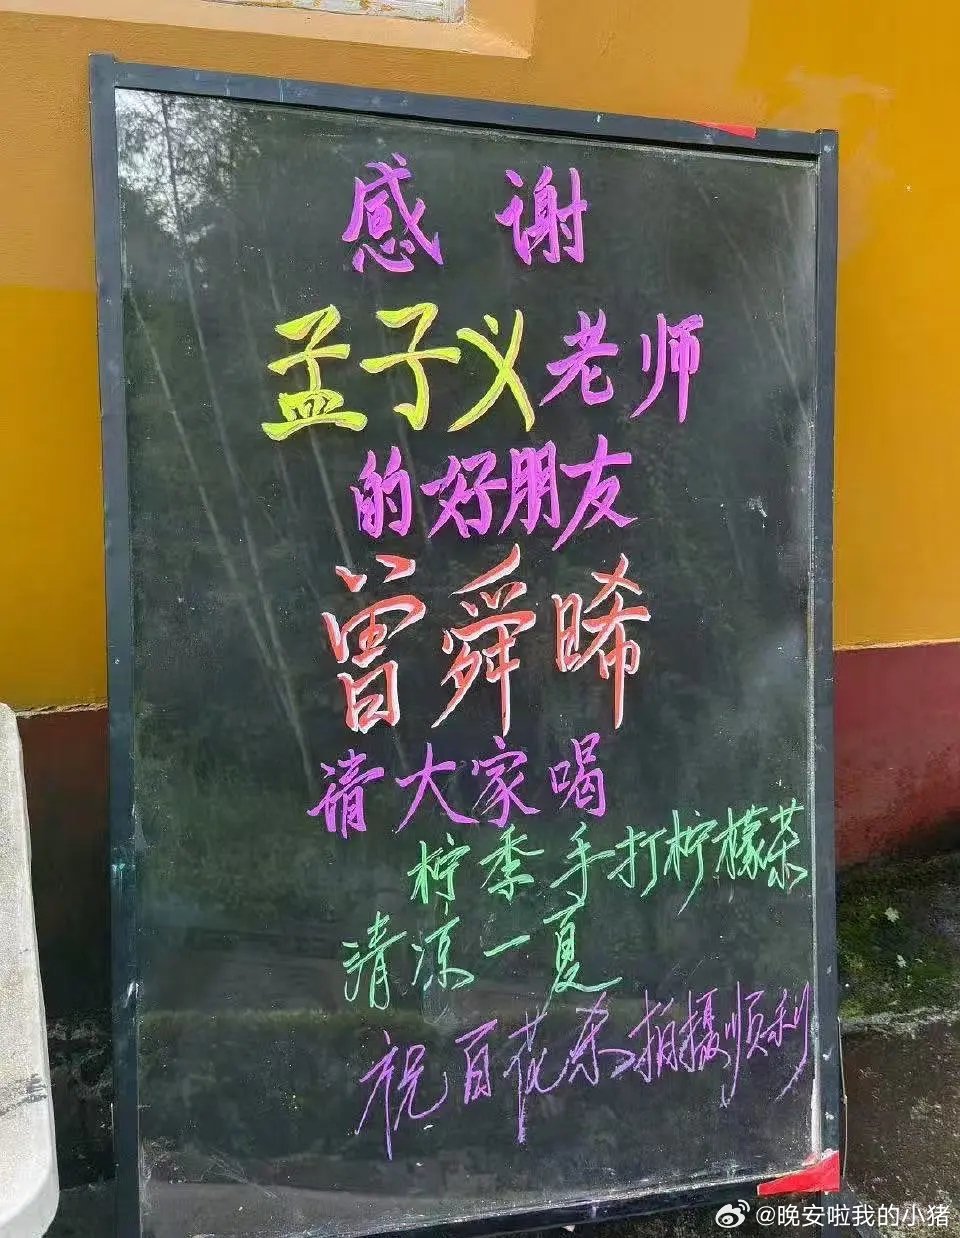 感谢
孟子义老师
的好朋友
曾舜晞
请大家喝
柠季手打柠檬茶
清凉一夏
祝百花杀拍摄顺利
@晚安啦我的小猪